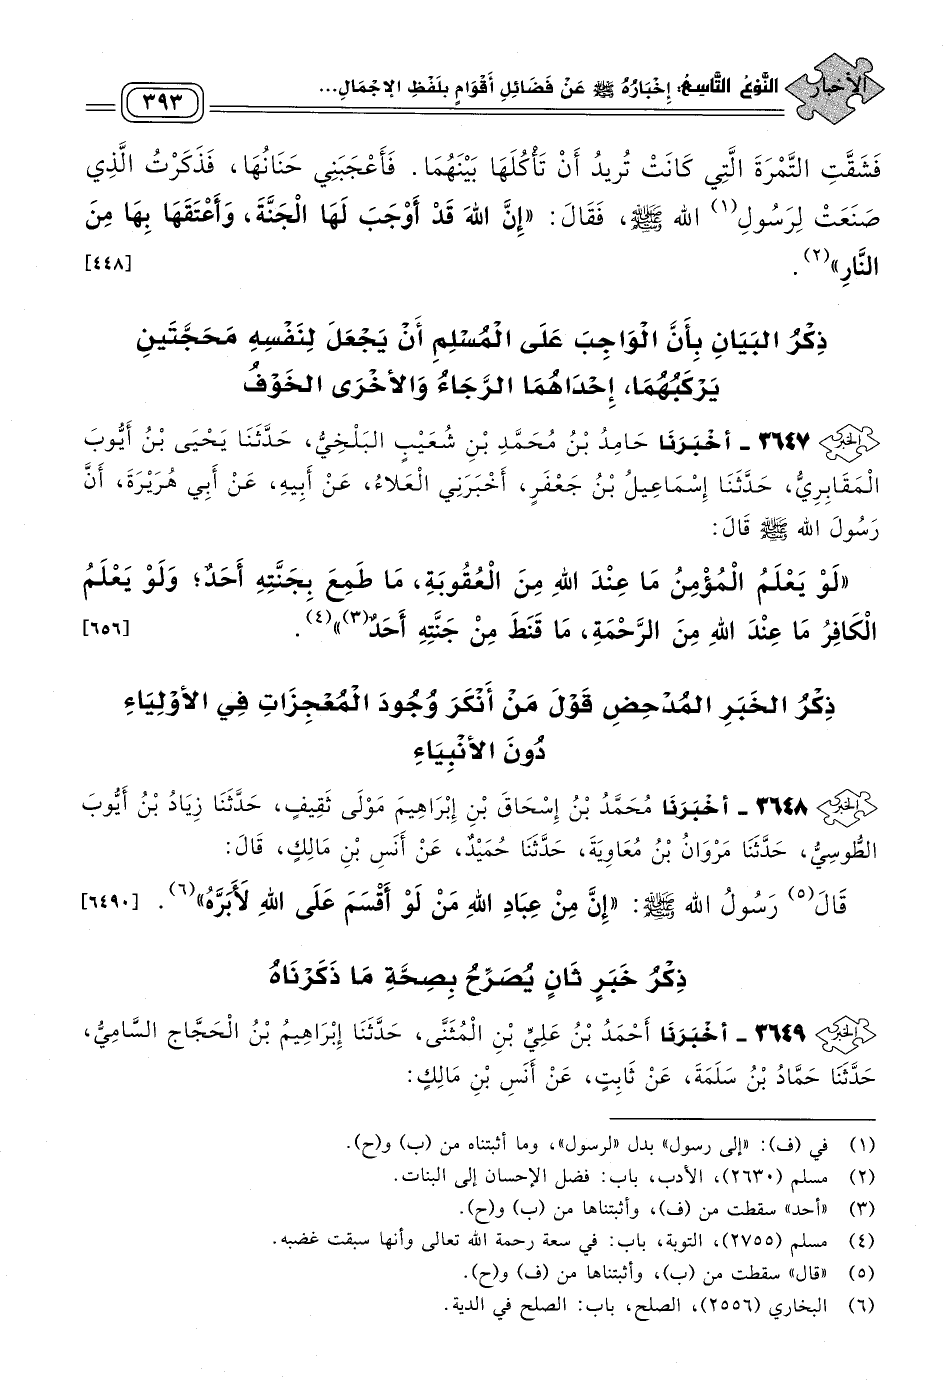 الأخبار
النَّوْعُ التَّاسِعُ: إِخْبَارُهُ ﷺ عَنْ فَضَائِلِ أَقْوَامٍ بِلَفْظِ الإِجْمَالِ...
٣٩٣
فَشَقَّتِ التَّمْرَةَ الَّتِي كَانَتْ تُرِيدُ أَنْ تَأْكُلَهَا بَيْنَهُمَا. فَأَعْجَبَنِي حَنَانُهَا، فَذَكَرْتُ الَّذِي
صَنَعَتْ لِرَسُولِ(١) اللهِ ﷺ، فَقَالَ: «إِنَّ اللهَ قَدْ أَوْجَبَ لَهَا الْجَنَّةَ، وَأَعْتَقَهَا بِهَا مِنَ
النَّارِ»(٢). [٤٤٨]
ذِكْرُ البَيَانِ بِأَنَّ الْوَاجِبَ عَلَى الْمُسْلِمِ أَنْ يَجْعَلَ لِنَفْسِهِ مَحَجَّتَينِ
يَرْكَبُهُمَا، إِحْدَاهُمَا الرَّجَاءُ وَالأُخْرَى الخَوْفُ
٣٦٤٧ - أَخْبَرَنَا حَامِدُ بْنُ مُحَمَّدِ بْنِ شُعَيْبٍ البَلْخِيُّ، حَدَّثَنَا يَحْيَى بْنُ أَيُّوبَ
الْمَقَابِرِيُّ، حَدَّثَنَا إِسْمَاعِيلُ بْنُ جَعْفَرٍ، أَخْبَرَنِي الْعَلَاءُ، عَنْ أَبِيهِ، عَنْ أَبِي هُرَيْرَةَ، أَنَّ
رَسُولَ اللهِ ﷺ قَالَ:
«لَوْ يَعْلَمُ الْمُؤْمِنُ مَا عِنْدَ اللهِ مِنَ الْعُقُوبَةِ، مَا طَمِعَ بِجَنَّتِهِ أَحَدٌ؛ وَلَوْ يَعْلَمُ
الْكَافِرُ مَا عِنْدَ اللهِ مِنَ الرَّحْمَةِ، مَا قَنَطَ مِنْ جَنَّتِهِ أَحَدٌ(٣)»(٤). [٦٥٦]
ذِكْرُ الخَبَرِ المُدْحِضِ قَوْلَ مَنْ أَنْكَرَ وُجُودَ الْمُعْجِزَاتِ فِي الأَوْلِيَاءِ
دُونَ الأَنْبِيَاءِ
٣٦٤٨ - أَخْبَرَنَا مُحَمَّدُ بْنُ إِسْحَاقَ بْنِ إِبْرَاهِيمَ مَوْلَى ثَقِيفٍ، حَدَّثَنَا زِيَادُ بْنُ أَيُّوبَ
الطُّوسِيُّ، حَدَّثَنَا مَرْوَانُ بْنُ مُعَاوِيَةَ، حَدَّثَنَا حُمَيْدٌ، عَنْ أَنَسِ بْنِ مَالِكٍ، قَالَ:
قَالَ(٥) رَسُولُ اللهِ ﷺ: «إِنَّ مِنْ عِبَادِ اللهِ مَنْ لَوْ أَقْسَمَ عَلَى اللهِ لَأَبَرَّهُ»(٦). [٦٤٩٠]
ذِكْرُ خَبَرٍ ثَانٍ يُصَرِّحُ بِصِحَّةِ مَا ذَكَرْنَاهُ
٣٦٤٩ - أَخْبَرَنَا أَحْمَدُ بْنُ عَلِيِّ بْنِ الْمُثَنَّى، حَدَّثَنَا إِبْرَاهِيمُ بْنُ الْحَجَّاجِ السَّامِيُّ،
حَدَّثَنَا حَمَّادُ بْنُ سَلَمَةَ، عَنْ ثَابِتٍ، عَنْ أَنَسِ بْنِ مَالِكٍ:
(١) في (ف): «إلى رسول» بدل «لرسول»، وما أثبتناه من (ب) و(ح).
(٢) مسلم (٢٦٣٠)، الأدب، باب: فضل الإحسان إلى البنات.
(٣) «أحد» سقطت من (ف)، وأثبتناها من (ب) و(ح).
(٤) مسلم (٢٧٥٥)، التوبة، باب: في سعة رحمة الله تعالى وأنها سبقت غضبه.
(٥) «قال» سقطت من (ب)، وأثبتناها من (ف) و(ح).
(٦) البخاري (٢٥٥٦)، الصلح، باب: الصلح في الدية.